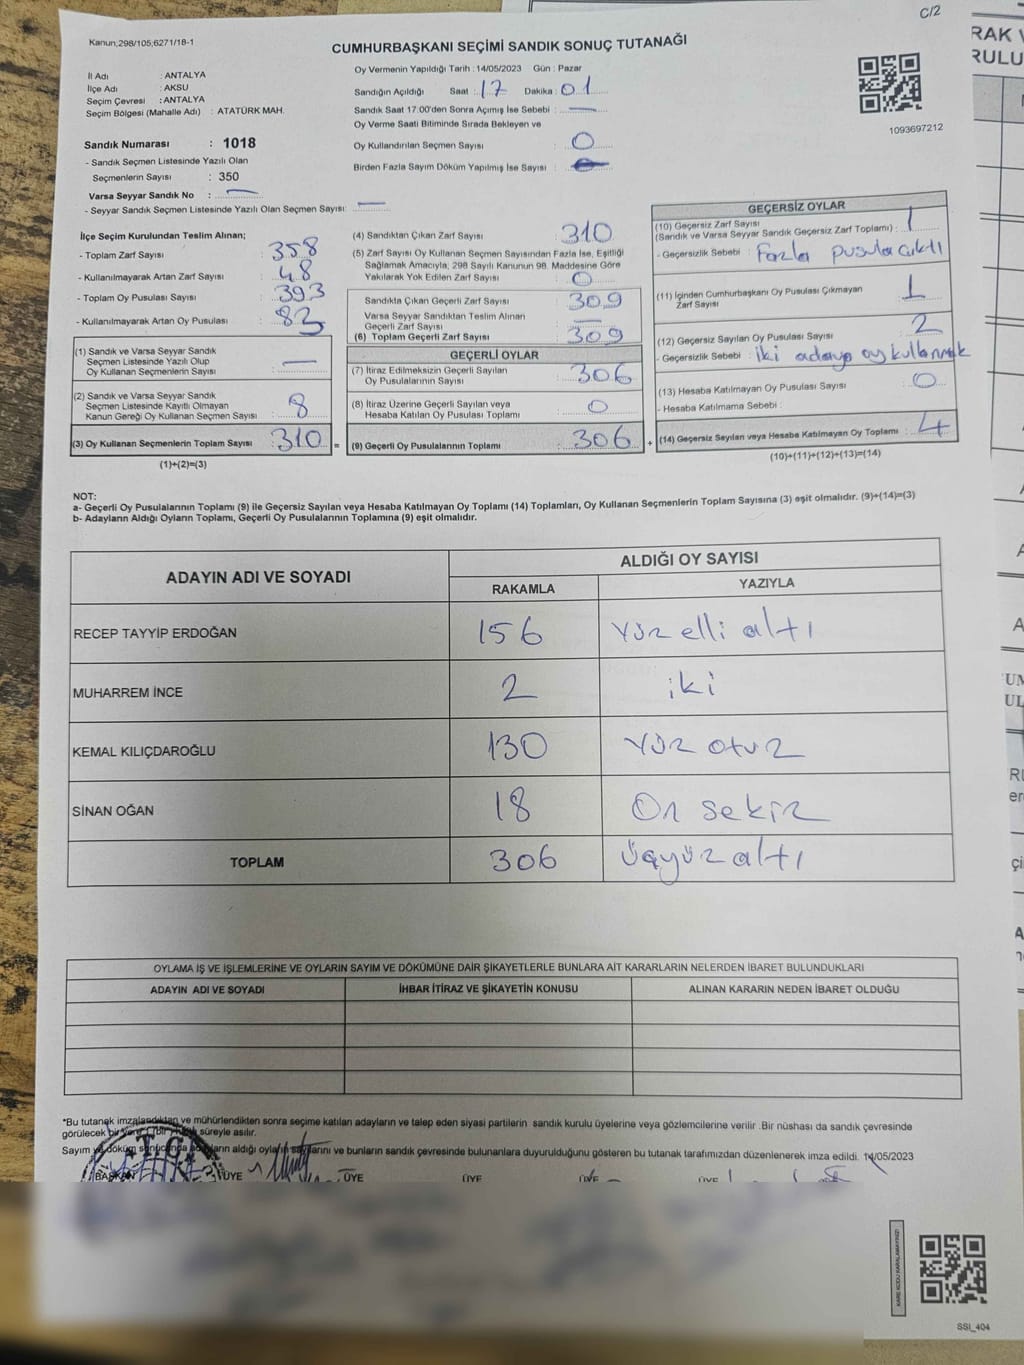 C/2
Kanun;298/105;6271/18-1
CUMHURBAŞKANI SEÇİMİ SANDIK SONUÇ TUTANAĞI
İl Adı : ANTALYA
İlçe Adı : AKSU
Seçim Çevresi : ANTALYA
Seçim Bölgesi (Mahalle Adı) : ATATÜRK MAH.
Oy Vermenin Yapıldığı Tarih : 14/05/2023 Gün : Pazar
Sandığın Açıldığı Saat : 17 Dakika : 01
Sandık Saat 17:00'den Sonra Açımış İse Sebebi : —
Oy Verme Saati Bitiminde Sırada Bekleyen ve
Oy Kullandırılan Seçmen Sayısı : 0
Birden Fazla Sayım Döküm Yapılmış İse Sayısı :
1093697212
Sandık Numarası : 1018
- Sandık Seçmen Listesinde Yazılı Olan
Seçmenlerin Sayısı : 350
Varsa Seyyar Sandık No : —
- Seyyar Sandık Seçmen Listesinde Yazılı Olan Seçmen Sayısı: —
İlçe Seçim Kurulundan Teslim Alınan;
- Toplam Zarf Sayısı : 358
- Kullanılmayarak Artan Zarf Sayısı : 48
- Toplam Oy Pusulası Sayısı : 393
- Kullanılmayarak Artan Oy Pusulası : 83
(1) Sandık ve Varsa Seyyar Sandık
Seçmen Listesinde Yazılı Olup
Oy Kullanan Seçmenlerin Sayısı : —
(2) Sandık ve Varsa Seyyar Sandık
Seçmen Listesinde Kayıtlı Olmayan
Kanun Gereği Oy Kullanan Seçmen Sayısı : 8
(3) Oy Kullanan Seçmenlerin Toplam Sayısı : 310 =
(1)+(2)=(3)
(4) Sandıktan Çıkan Zarf Sayısı : 310
(5) Zarf Sayısı Oy Kullanan Seçmen Sayısından Fazla İse, Eşitliği
Sağlamak Amacıyla, 298 Sayılı Kanunun 98. Maddesine Göre
Yakılarak Yok Edilen Zarf Sayısı : 0
Sandıkta Çıkan Geçerli Zarf Sayısı : 309
Varsa Seyyar Sandıktan Teslim Alınan
Geçerli Zarf Sayısı : —
(6) Toplam Geçerli Zarf Sayısı : 309
GEÇERLİ OYLAR
(7) İtiraz Edilmeksizin Geçerli Sayılan
Oy Pusulalarının Sayısı : 306
(8) İtiraz Üzerine Geçerli Sayılan veya
Hesaba Katılan Oy Pusulası Toplamı : 0
(9) Geçerli Oy Pusulalarının Toplamı : 306 +
GEÇERSİZ OYLAR
(10) Geçersiz Zarf Sayısı
(Sandık ve Varsa Seyyar Sandık Geçersiz Zarf Toplamı) : 1
- Geçersizlik Sebebi : Fazla pusula çıktı
(11) İçinden Cumhurbaşkanı Oy Pusulası Çıkmayan
Zarf Sayısı : 1
(12) Geçersiz Sayılan Oy Pusulası Sayısı : 2
- Geçersizlik Sebebi : iki adaya oy kullanmak
(13) Hesaba Katılmayan Oy Pusulası Sayısı : 0
- Hesaba Katılmama Sebebi :
(14) Geçersiz Sayılan veya Hesaba Katılmayan Oy Toplamı : 4
(10)+(11)+(12)+(13)=(14)
NOT:
a- Geçerli Oy Pusulalarının Toplamı (9) ile Geçersiz Sayılan veya Hesaba Katılmayan Oy Toplamı (14) Toplamları, Oy Kullanan Seçmenlerin Toplam Sayısına (3) eşit olmalıdır. (9)+(14)=(3)
b- Adayların Aldığı Oyların Toplamı, Geçerli Oy Pusulalarının Toplamına (9) eşit olmalıdır.
ADAYIN ADI VE SOYADI
ALDIĞI OY SAYISI
RAKAMLA YAZIYLA
RECEP TAYYİP ERDOĞAN 156 Yüz elli altı
MUHARREM İNCE 2 iki
KEMAL KILIÇDAROĞLU 130 Yüz otuz
SİNAN OĞAN 18 On sekiz
TOPLAM 306 üçyüz altı
OYLAMA İŞ VE İŞLEMLERİNE VE OYLARIN SAYIM VE DÖKÜMÜNE DAİR ŞİKAYETLERLE BUNLARA AİT KARARLARIN NELERDEN İBARET BULUNDUKLARI
ADAYIN ADI VE SOYADI İHBAR İTİRAZ VE ŞİKAYETİN KONUSU ALINAN KARARIN NEDEN İBARET OLDUĞU
*Bu tutanak imzalandıktan ve mühürlendikten sonra seçime katılan adayların ve talep eden siyasi partilerin sandık kurulu üyelerine veya gözlemcilerine verilir .Bir nüshası da sandık çevresinde
görülecek bir yere süreyle asılır.
Sayım ve döküm sonucunda adayların aldığı oyların sayılarını ve bunların sandık çevresinde bulunanlara duyurulduğunu gösteren bu tutanak tarafımızdan düzenlenerek imza edildi. 14/05/2023
BAŞKAN ÜYE ÜYE ÜYE ÜYE ÜYE
KARE KODU KARALAMAYINIZ!
SSI_404